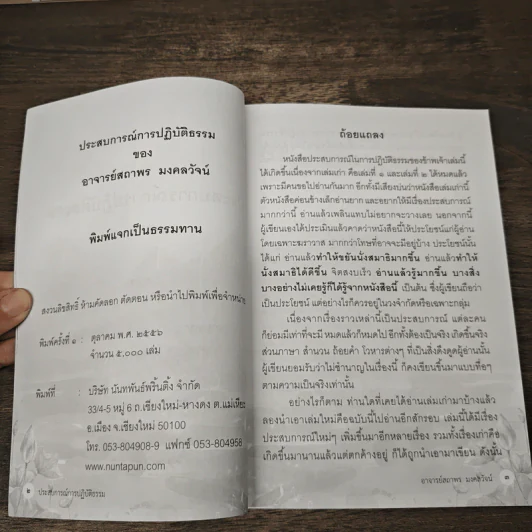 ประสบการณ์การปฏิบัติธรรม
ของ
อาจารย์สถาพร มงคลวัจน์
พิมพ์แจกเป็นธรรมทาน
สงวนลิขสิทธิ์ ห้ามคัดลอก ตัดตอน หรือนำไปพิมพ์เพื่อจำหน่าย
พิมพ์ครั้งที่ ๑ : ตุลาคม พ.ศ. ๒๕๕๖
จำนวน ๕,๐๐๐ เล่ม
พิมพ์ที่ : บริษัท นันทพันธ์พริ้นติ้ง จำกัด
33/4-5 หมู่ 6 ถ.เชียงใหม่-หางดง ต.แม่เหียะ
อ.เมือง จ.เชียงใหม่ 50100
โทร. 053-804908-9 แฟกซ์ 053-804958
www.nuntapun.com
๒ ประสบการณ์การปฏิบัติธรรม
ถ้อยแถลง
หนังสือประสบการณ์ในการปฏิบัติธรรมของข้าพเจ้าเล่มนี้
ได้เกิดขึ้นเนื่องจากเล่มเก่า คือเล่มที่ ๑ และเล่มที่ ๒ ได้หมดแล้ว
เพราะมีคนขอไปอ่านกันมาก อีกทั้งมีเสียงบ่นว่าหนังสือเล่มเก่านี้
ตัวหนังสือค่อนข้างเล็กอ่านยาก และอยากให้มีเรื่องประสบการณ์
มากกว่านี้ อ่านแล้วเพลินแทบไม่อยากจะวางเลย นอกจากนี้
ผู้เขียนเองได้ประเมินแล้วคาดว่าหนังสือนี้ให้ประโยชน์แก่ผู้อ่าน
โดยเฉพาะฆราวาส มากกว่าโทษที่อาจจะมีอยู่บ้าง ประโยชน์นั้น
ได้แก่ อ่านแล้วทำให้ขยันนั่งสมาธิมากขึ้น อ่านแล้วทำให้
นั่งสมาธิได้ดีขึ้น จิตสงบเร็ว อ่านแล้วรู้มากขึ้น บางสิ่ง
บางอย่างไม่เคยรู้ก็ได้รู้จากหนังสือนี้ เป็นต้น ซึ่งผู้เขียนถือว่า
เป็นประโยชน์ แต่อย่างไรก็ควรอยู่ในวงจำกัดหรือเฉพาะกลุ่ม
เนื่องจากเรื่องราวเหล่านี้เป็นประสบการณ์ แต่ละคน
ก็ย่อมมีเท่าที่จะมี หมดแล้วก็หมดไป อีกทั้งต้องเป็นจริง เกิดขึ้นจริง
ส่วนภาษา สำนวน ถ้อยคำ โวหารต่างๆ ที่เป็นสิ่งดึงดูดผู้อ่านนั้น
ผู้เขียนยอมรับว่าไม่ชำนาญในเรื่องนี้ ก็คงเขียนขึ้นมาแบบทื่อๆ
ตามความเป็นจริงเท่านั้น
อย่างไรก็ตาม ท่านใดที่เคยได้อ่านเล่มเก่ามาบ้างแล้ว
ลองนำเอาเล่มใหม่คือฉบับนี้ไปอ่านอีกสักรอบ เล่มนี้ได้มีเรื่อง
ประสบการณ์ใหม่ๆ เพิ่มขึ้นมาอีกหลายเรื่อง รวมทั้งเรื่องเก่าคือ
เกิดขึ้นมานานแล้วแต่ตกค้างอยู่ ก็ได้ถูกนำเอามาเขียน ดังนั้น
อาจารย์สถาพร มงคลวัจน์ ๓